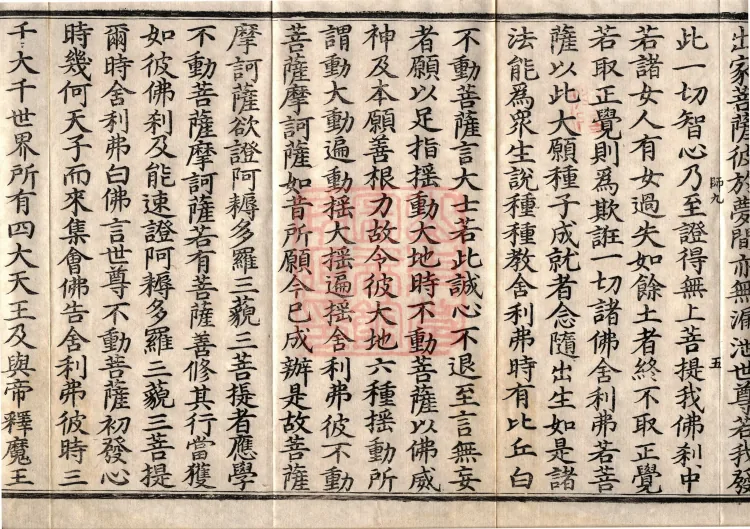 出家菩薩彼於夢間亦無漏泄世尊若我發
此一切智心乃至證得無上菩提我佛刹中
若諸女人有女過失如餘土者終不取正覺
若取正覺則為欺誑一切諸佛舍利弗若菩
薩以此大願種子成就者念隨出生如是諸
法能為衆生說種種教舍利弗時有比丘白
師九
五
不動菩薩言大士若此誠心不退至言無妄
者願以足指揺動大地時不動菩薩以佛威
神及本願善根力故令彼大地六種揺動所
謂動大動遍動揺大揺遍揺舍利弗彼不動
菩薩摩訶薩如昔所願今已成辦是故菩薩
摩訶薩欲證阿耨多羅三藐三菩提者應學
不動菩薩摩訶薩若有菩薩善修其行當獲
如彼佛刹及能速證阿耨多羅三藐三菩提
爾時舍利弗白佛言世尊不動菩薩初發心
時幾何天子而來集會佛告舍利弗彼時三
千大千世界所有四大天王及與帝釋魔王